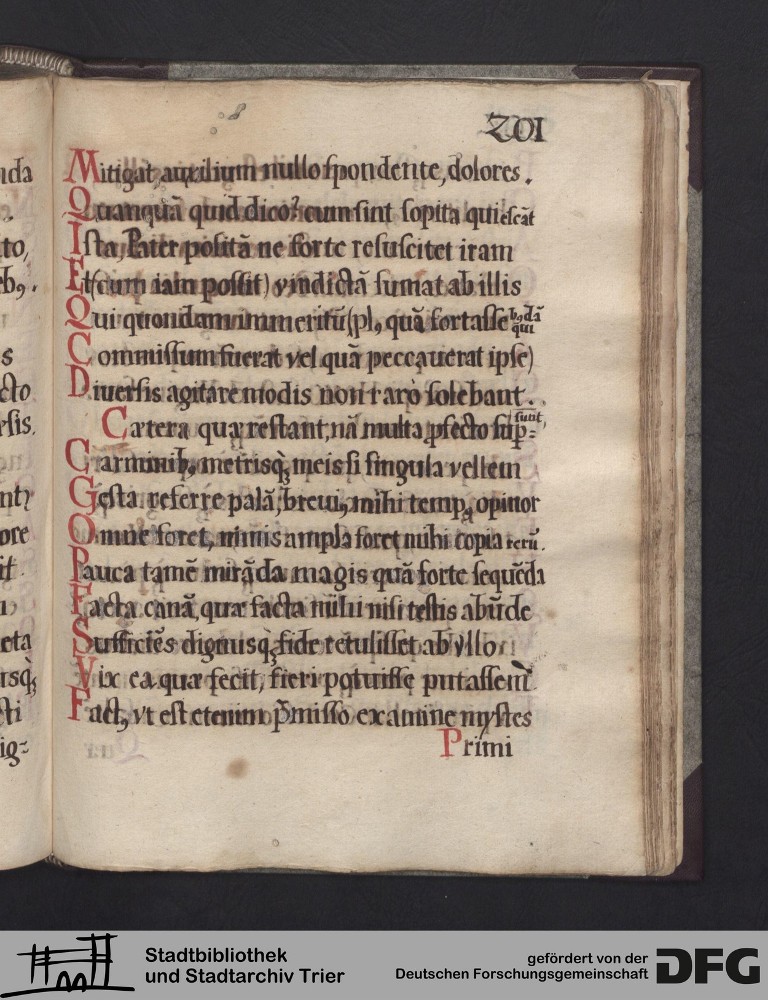 201
Mitigat, auxilium nullo spondente, dolores.
Quanquā quid dico? cum sint sopita quiescāt
Ista, Pater positā ne forte resuscitet iram
Et (cum iam possit) vindictā sumat ab illis
Qui quondam immeritū (pl, quā fortasse
Commissum fuerat vel quā peccauerat ipse)
Diuersis agitare modis non raro solebant.
Cætera quæ restant, nā multa ꝓfecto sup-
sunt,
Carminibꝫ metrisqꝫ meis si singula vellem
Gesta referre palā, breuiꝰ mihi tempꝰ opinor
Omne foret, nimis ampla foret mihi copia rerū.
Pauca tamē mirāda magis quā forte sequēda
Facta canā, quæ facta mihi nisi testis abūde
Sufficiēs dignusqꝫ fide retulisset ab vllo
Vix ea quæ fecit, fieri potuisse putassem
Factꝰ, vt est etenim p̄misso examine mystes
Primi
nda
to,
s
cto
rsis.
ore
eta
rsqꝫ
cti
Stadtbibliothek
und Stadtarchiv Trier
gefördert von der
Deutschen Forschungsgemeinschaft
DFG